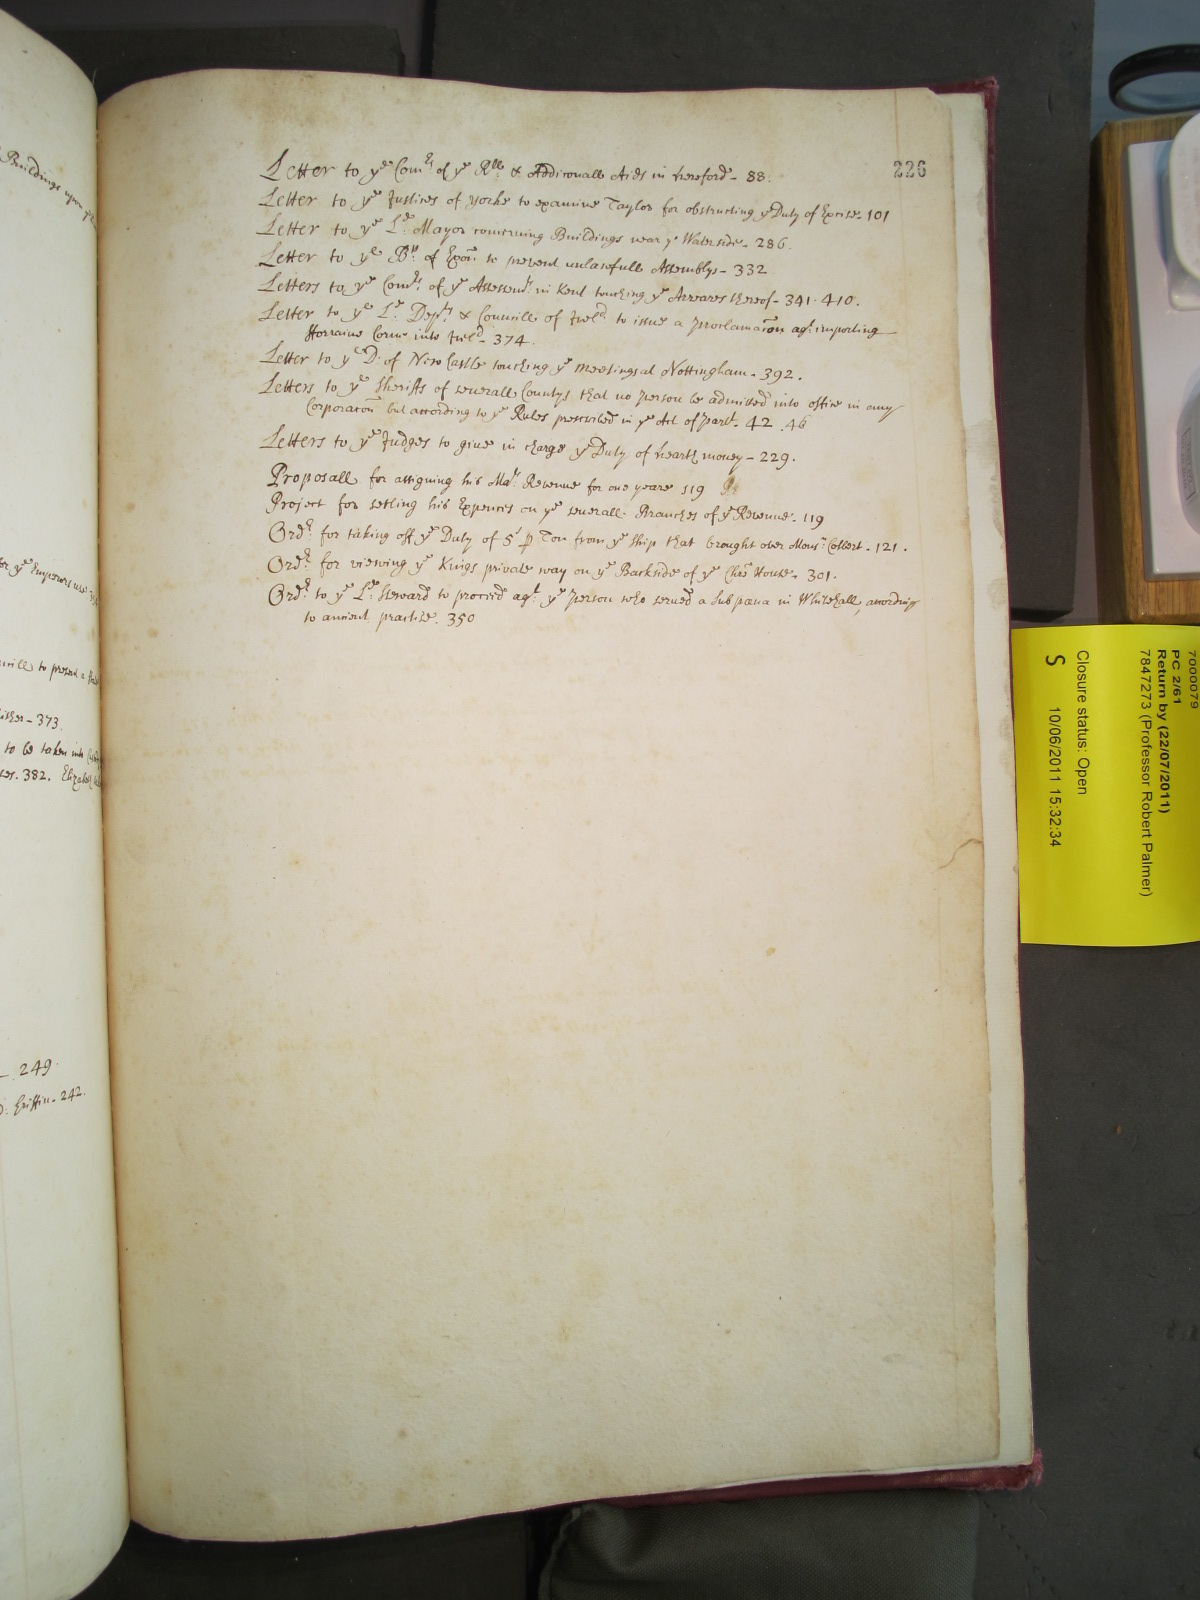 Buildings upon ye
or ye Emperors
ncill to present a
373.
to be taken into
382. Elizabeth
249
Griffin - 242.
226
Letter to ye Comrs of ye Rll & Addiconall Aids in hereford - 88.
Letter to ye Justices of Yorke to examine Taylor for obstructing ye Duty of Excise - 101
Letter to ye Ld Mayor concerning Buildings near ye Waterside - 286.
Letter to ye Bp of Exon to prevent unlawfull Assemblys - 332
Letters to ye Comrs of ye Assessmt in Kent touching ye Arreares thereof - 341. 410.
Letter to ye Ld Depty & Councill of Ireld to issue a proclamacon agt importing
fforraine Corne into Ireld - 374
Letter to ye D: of New Castle touching ye meetings at Nottingham - 392.
Letters to ye Sheriffs of severall Countys that no person be admitted into office in any
Corporacon but according to ye Rules prescribed in ye Act of Parlt. 42. 46
Letters to ye Judges to give in charge ye Duty of hearth money - 229.
Proposall for assigning his Maty Revenue for one yeare 119
Project for setling his Expences on ye severall Branches of ye Revenue. 119
Ordr for taking off ye Duty of 5s p Ton from ye ship that brought over Monsr Colbert - 121.
Ordr for viewing ye Kings private way on ye Backside of ye House - 301.
Ordr to ye Ld Steward to proceed agt ye person who served a Subpœna in Whitehall, according
to ancient practise. 350
7000079
PC 2/61
Return by (22/07/2011)
7847273 (Professor Robert Palmer)
Closure status: Open
S 10/06/2011 15:32:34